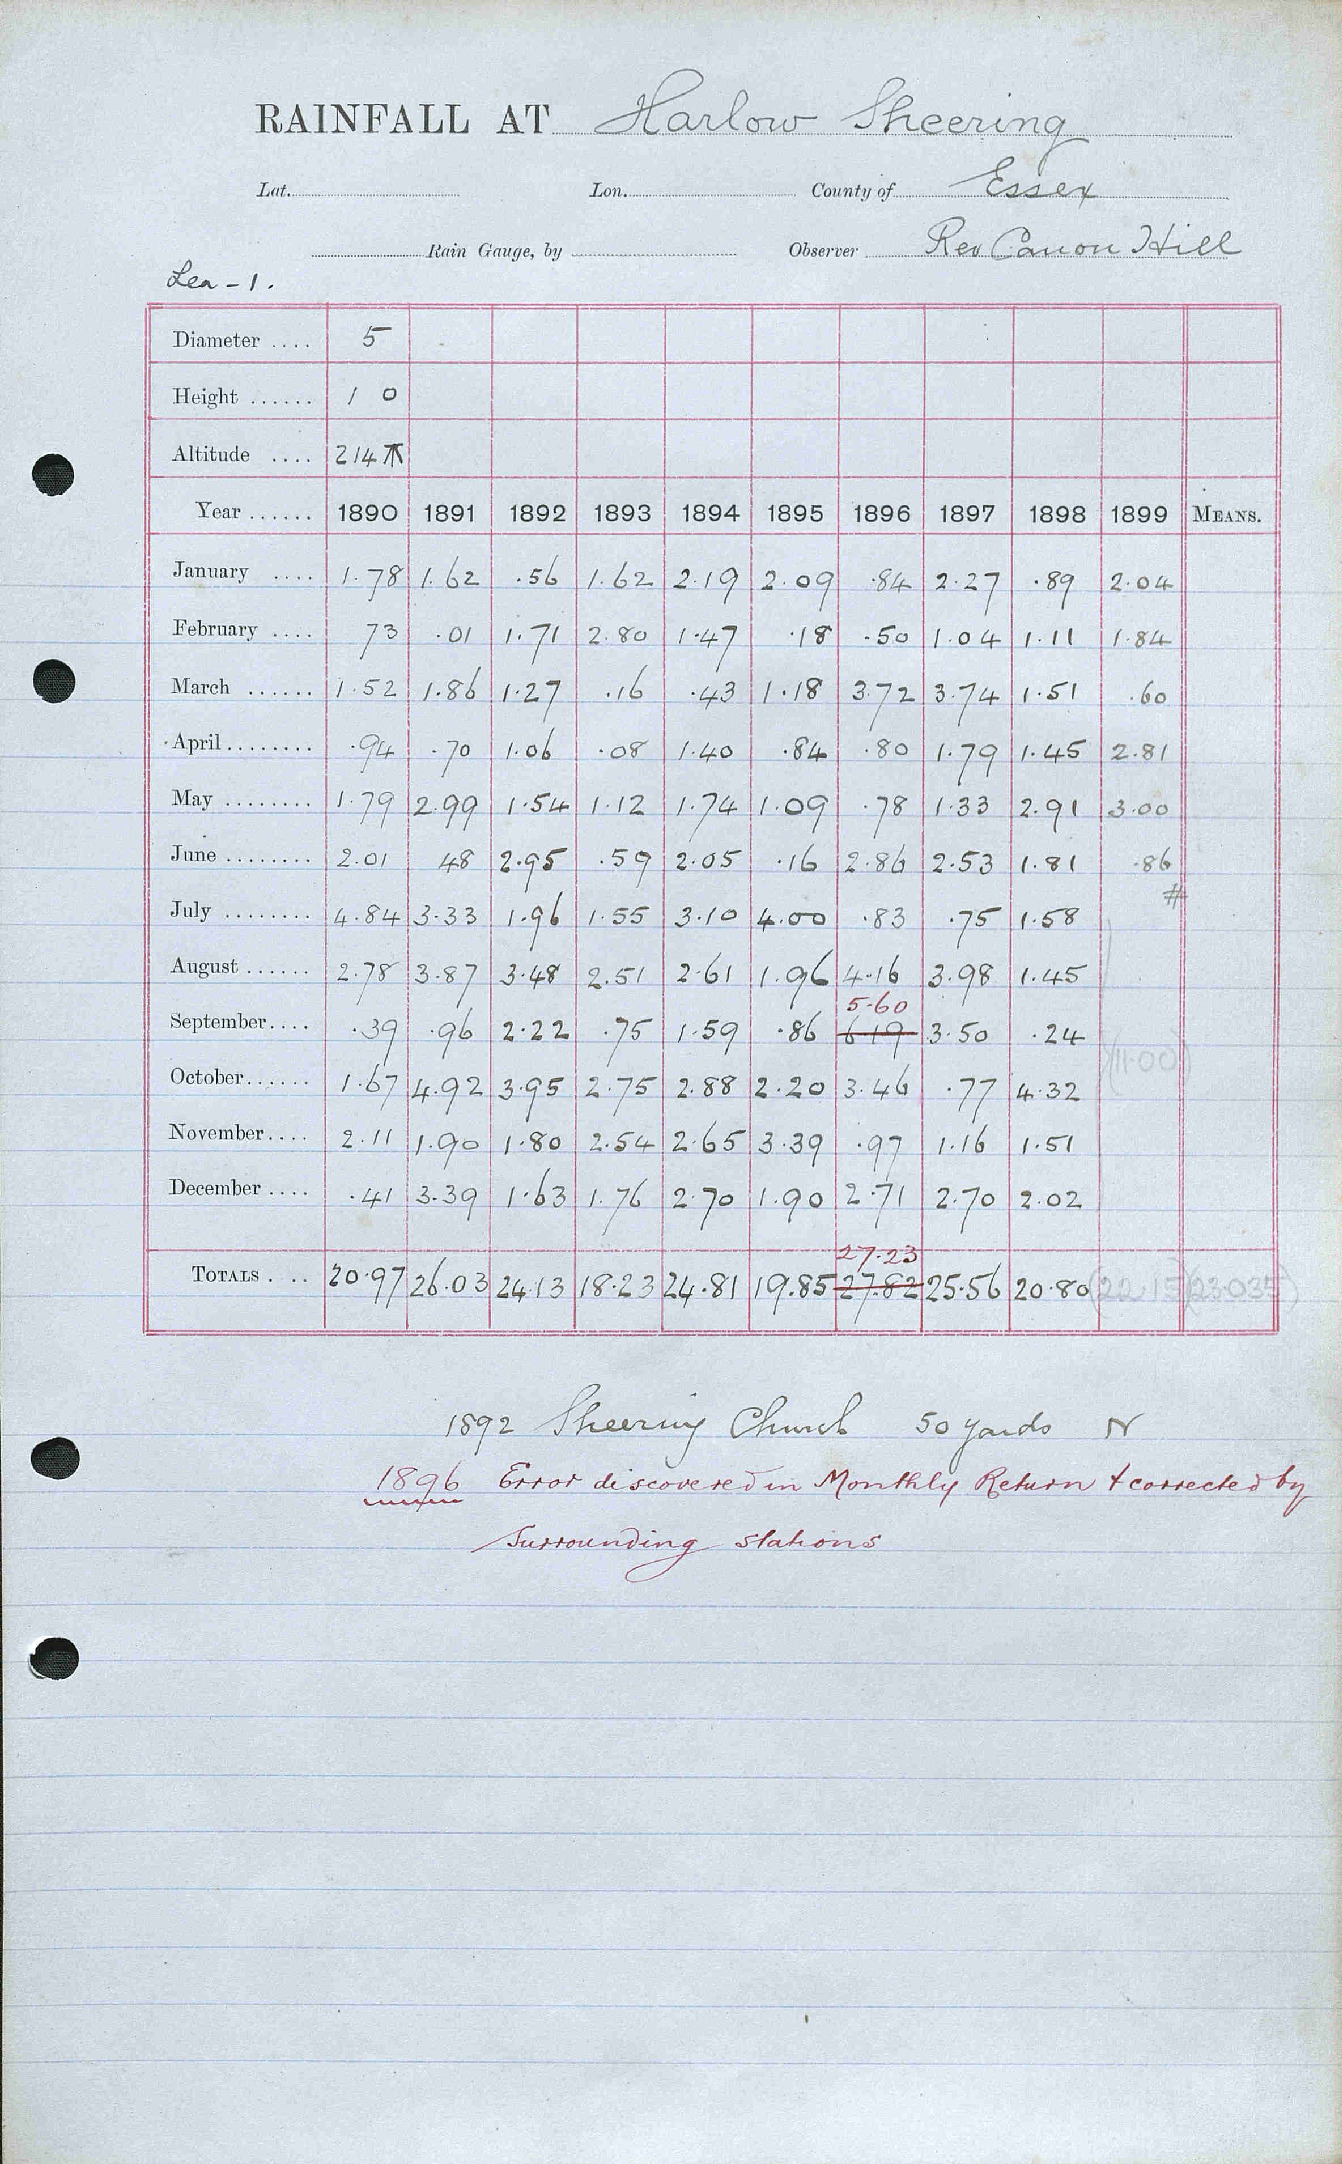 RAINFALL AT Harlow Sheering
Lat. Lon. County of Essex
Rain Gauge, by Observer Rev Canon Hill
Lea - 1.
Diameter .... 5
Height ...... 1 0
Altitude .... 214
Year ...... 1890 1891 1892 1893 1894 1895 1896 1897 1898 1899 MEANS.
January .... 1.78 1.62 .56 1.62 2.19 2.09 .84 2.27 .89 2.04
February .... 73 .01 1.71 2.80 1.47 .18 .50 1.04 1.11 1.84
March ...... 1.52 1.86 1.27 .16 .43 1.18 3.72 3.74 1.51 .60
April ........ .94 .70 1.06 .08 1.40 .84 .80 1.79 1.45 2.81
May ........ 1.79 2.99 1.54 1.12 1.74 1.09 .78 1.33 2.91 3.00
June ........ 2.01 48 2.95 .59 2.05 .16 2.86 2.53 1.81 .86
#
July ........ 4.84 3.33 1.96 1.55 3.10 4.00 .83 .75 1.58
August ...... 2.78 3.87 3.48 2.51 2.61 1.96 4.16 3.98 1.45
5.60
September.... .39 .96 2.22 .75 1.59 .86 6 19 3.50 .24
(11.00)
October...... 1.67 4.92 3.95 2.75 2.88 2.20 3.46 .77 4.32
November.... 2.11 1.90 1.80 2.54 2.65 3.39 .97 1.16 1.51
December .... .41 3.39 1.63 1.76 2.70 1.90 2.71 2.70 2.02
27.23
TOTALS . .. 20.97 26.03 24.13 18.23 24.81 19.85 27.82 25.56 20.80 (22.15)(23.035)
1892 Sheering Church 50 yards N
1896 Error discovered in Monthly Return & corrected by
surrounding stations